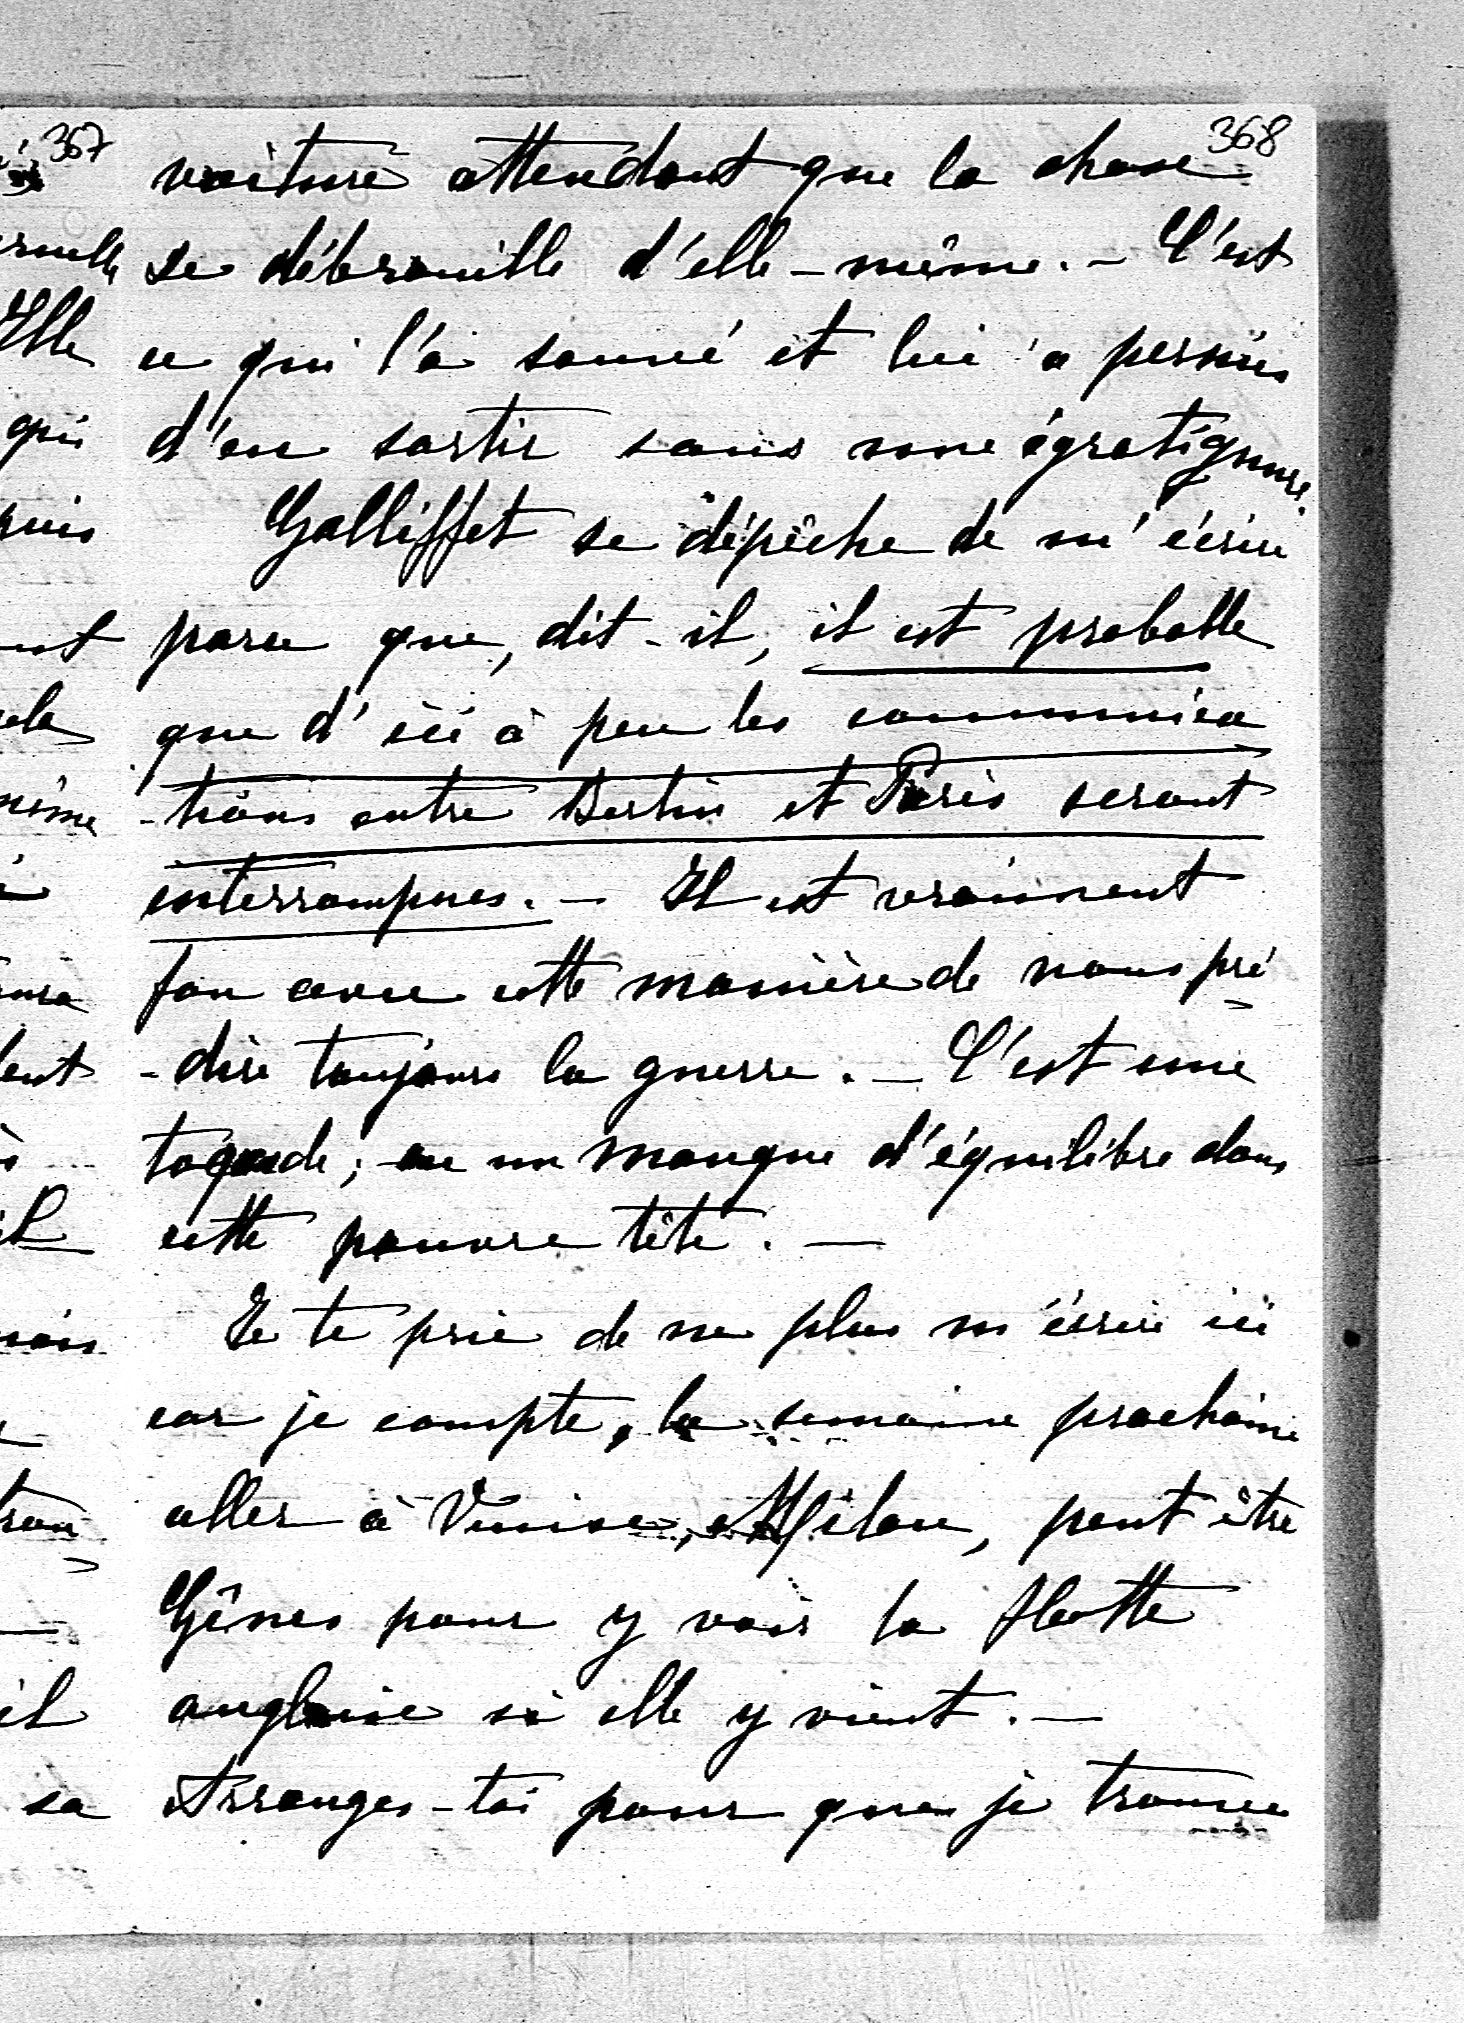 367
368
voiture attendant que la chose
se débrouille d'elle-même. - C'est
ce qui l'a sauvé et lui a permis
d'en sortir sans une égratignure.
Galliffet se dépêche de m'écrire
parce que, dit-il, il est probable
que d'ici à peu les communica
-tions entre Berlin et Paris seront
interrompues. - Il est vraiment
fou avec cette manière de nous pré
-dire toujours la guerre. - C'est une
togade; ou un manque d'équilibre dans
cette pauvre tête. -
Je te prie de ne plus m'écrire ici
car je compte, la semaine prochaine
aller à Venise, Milan, peut être
Gênes pour y voir la flotte
anglaise si elle y vient. -
Arranges-toi pour que je trouve